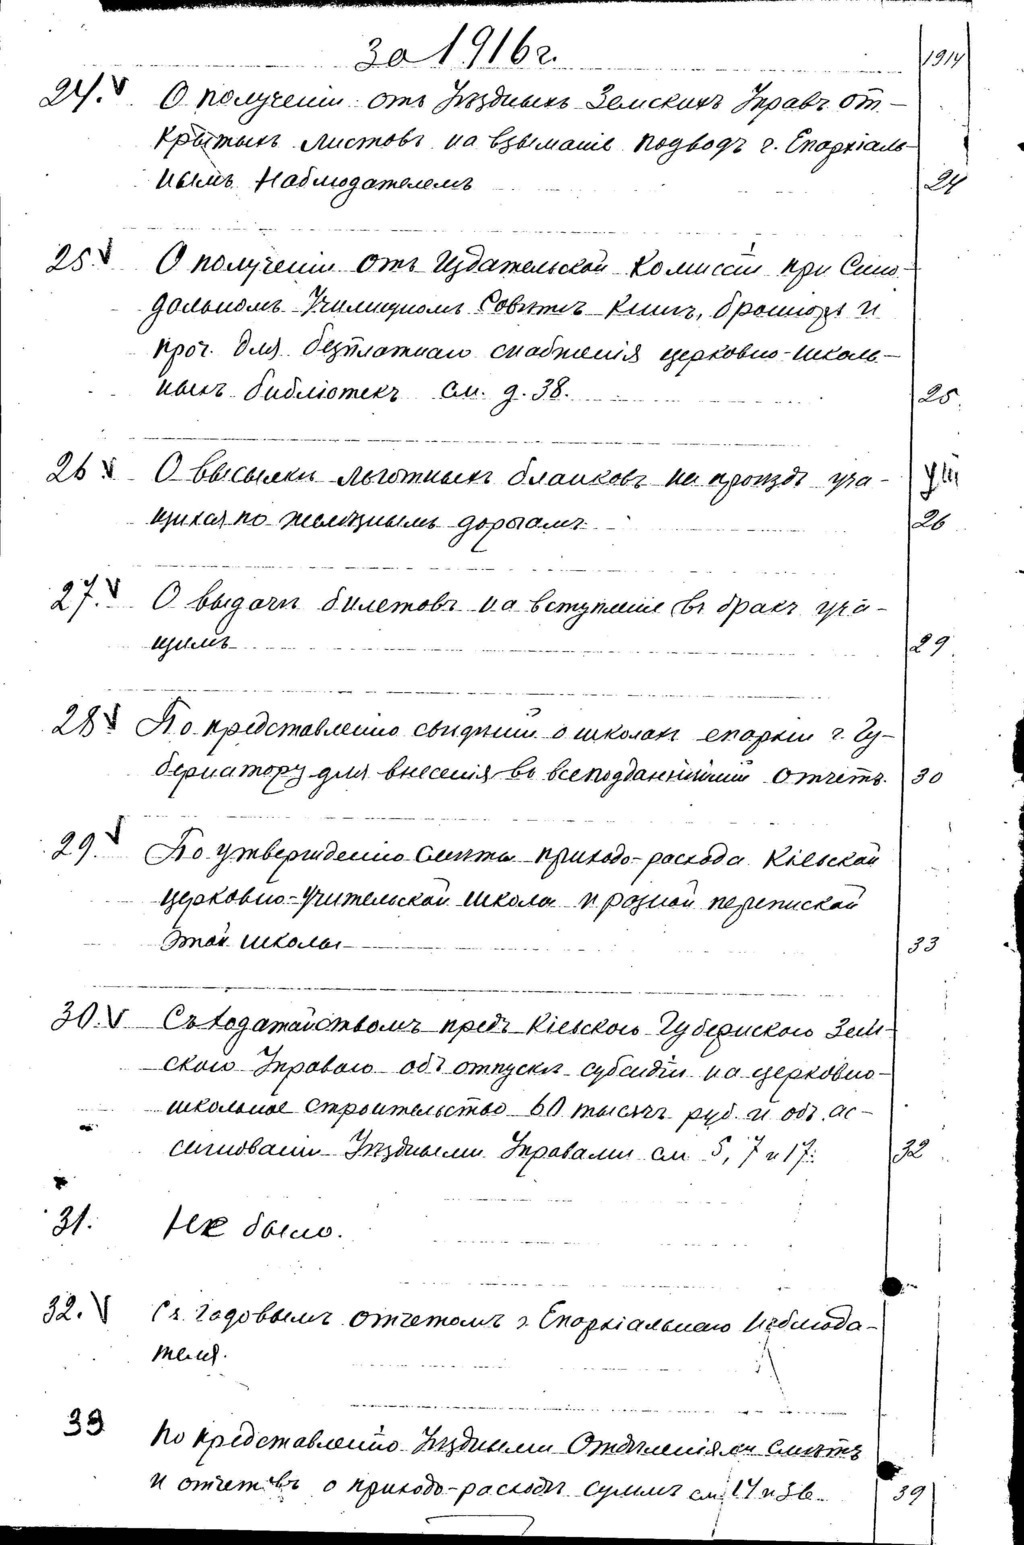 За 1916 г.
1914
24. V О полученіи отъ Уѣздныхъ Земскихъ Управъ от-
крытыхъ листовъ на взыманіе подводъ г. Епархіаль-
нымъ Наблюдателемъ 24
25. V О полученіи отъ Издательской Комиссіи при Сино-
дальномъ Училищномъ Совѣтѣ книгъ, брошюръ и
проч. для безплатнаго снабженія церковно-школь-
ныхъ библіотекъ см. д. 38. 25
26 V О высылкѣ льготныхъ бланковъ на проѣздъ уча- VIII
щихся по желѣзнымъ дорогамъ 26
27. V О выдачѣ билетовъ на вступленіе въ бракъ уча-
щимъ 29
28 V По представленію свѣдѣній о школахъ епархіи г. Гу-
бернатору для внесенія во всеподданнѣйшій отчетъ. 30
29. V По утвержденію смѣты приходо-расхода Кіевской
церковно-учительской школы и разной перепиской
этой школы 33
30. V Съ ходатайствомъ предъ Кіевскою Губернскою Зем-
скою Управою объ отпускѣ субсидіи на церковно-
школьное строительство 60 тысячъ руб. и объ ас-
сигнованіи Уѣздными Управами см 5, 7 и 17. 32
31. Не было.
32. V Съ годовымъ отчетомъ г. Епархіальнаго Наблюда-
теля.
33 По представленію Уѣздными Отдѣленіями смѣтъ
и отчетовъ о приходо-расходѣ суммъ см. 14 и 36 39